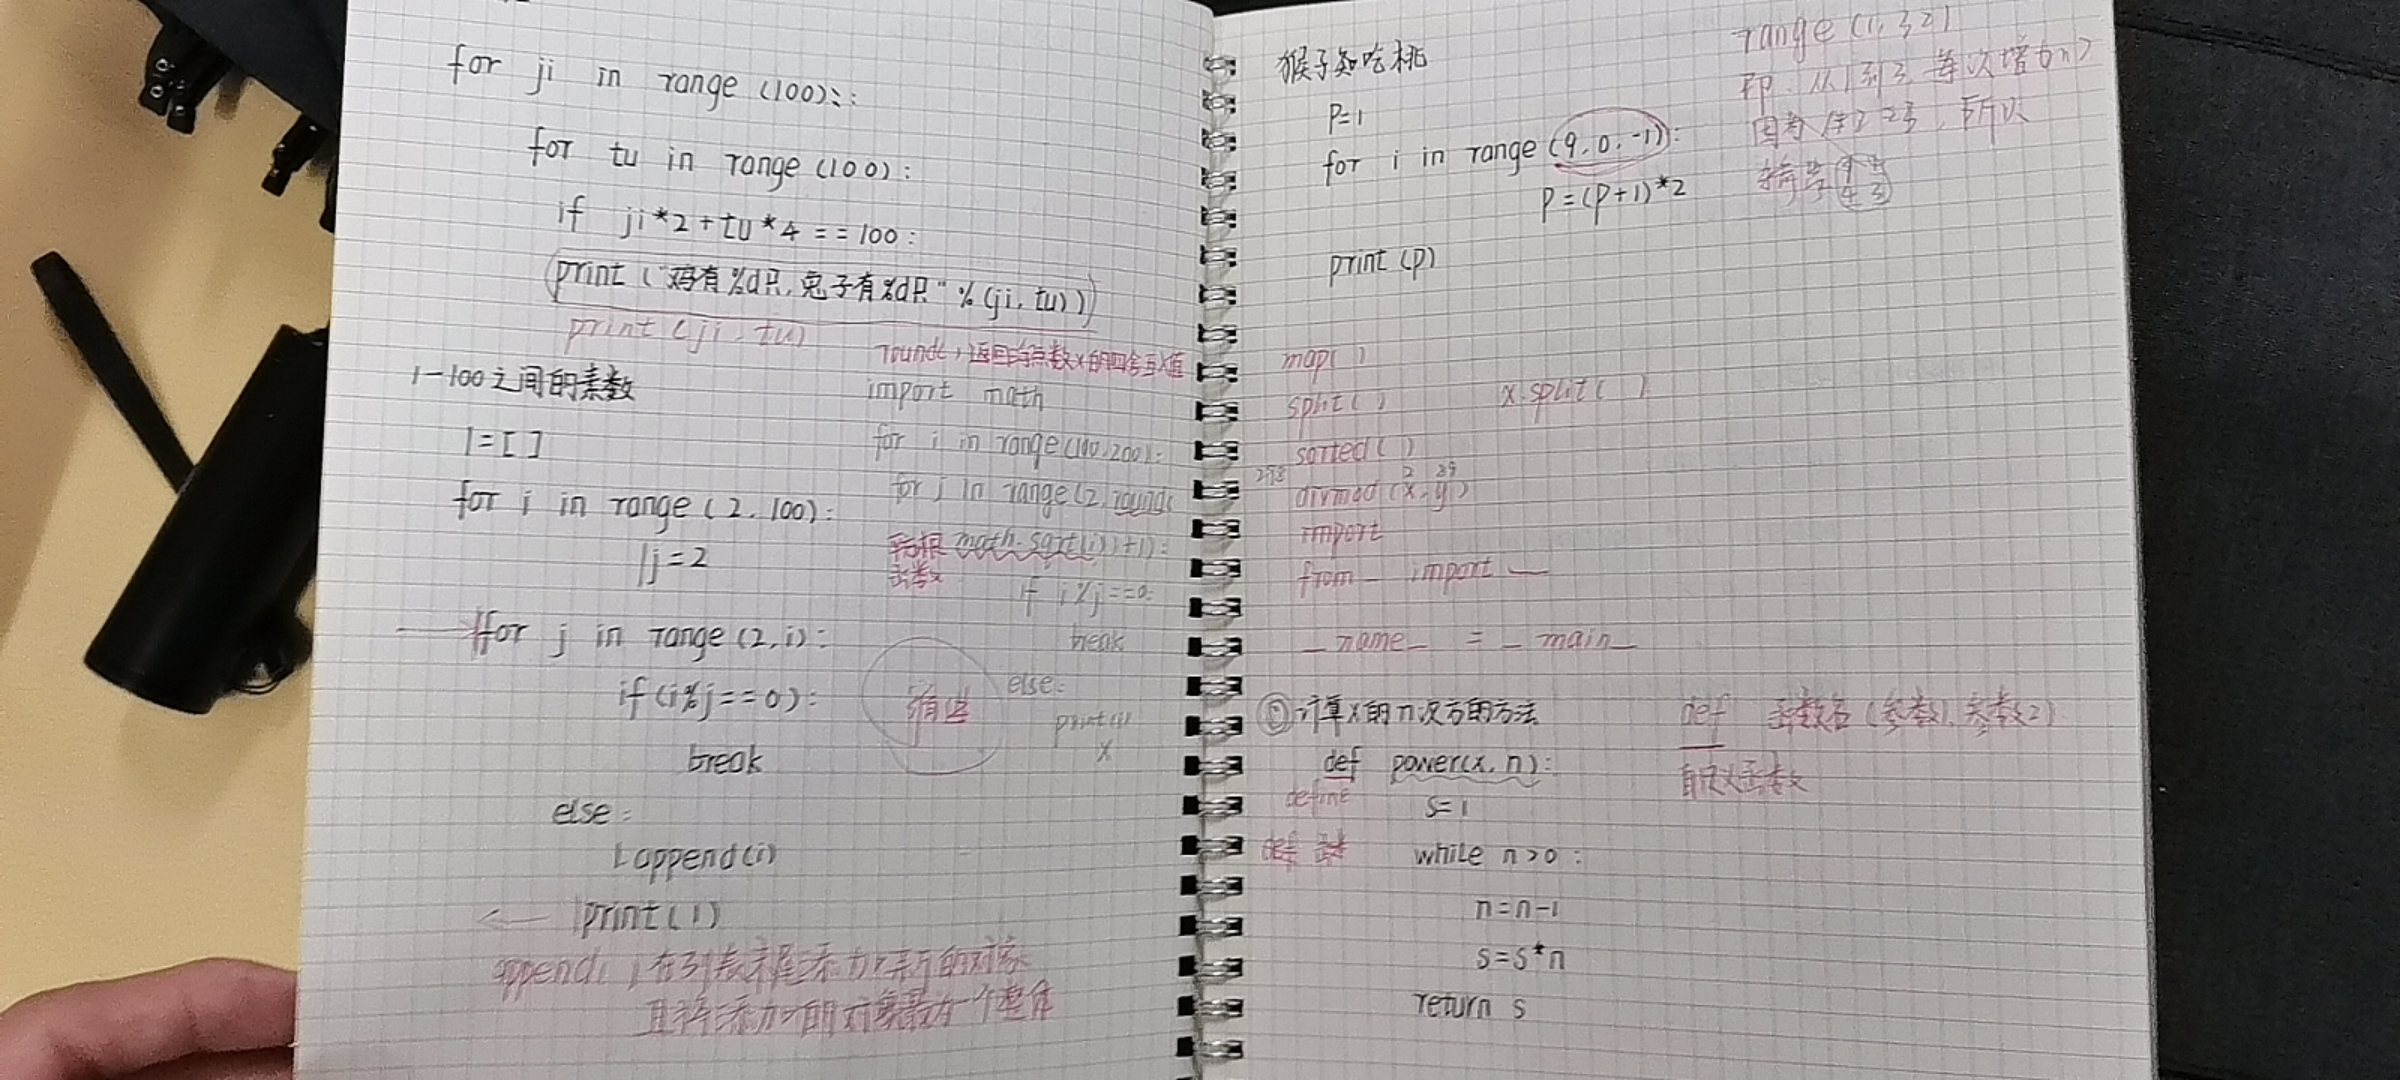 for ji in range (100)::
for tu in range (100):
if ji*2+tu*4==100:
print ("鸡有%d只,兔子有%d只"%(ji,tu))
print (ji,tu)
1-100之间的素数
l=[]
for i in range (2,100):
j=2
for j in range (2,i):
if (i%j==0):
break
else:
l.append(i)
print(l)
append( )在列表末尾添加新的对象
且将添加的对象最为一个整体
round( )返回浮点数x的四舍五入值
import math
for i in range(100,200):
for j in range(2,round(
平方根 math.sqrt(i))+1):
函数
if i%j==0:
break
else:
print(i)
x
猴子吃桃
P=1
for i in range (9,0,-1):
P=(P+1)*2
print (P)
range (1,3,2)
即:从1到3 每次增加2
因为1+2=3,所以
map( )
split( ) x.split( )
sorted( )
divmod (x,y)
import
from import
_name_ = _main_
计算x的n次方的方法
def power(x,n):
define
s=1
while n>0:
n=n-1
s=s*n
return s
def 函数名(参数1,参数2)
自定义函数